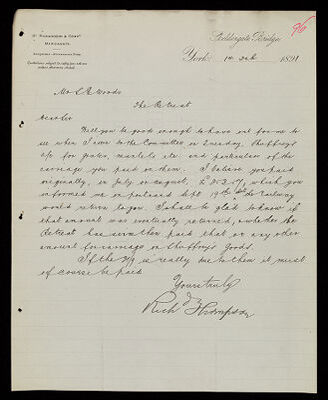 96
Skeldergate Bridge,
York: 1st Feb 1891
Mr. C. E. Woods
The Retreat
Dear Sir
Will you be good enough to have out for me to
see when I come to the Committee on Tuesday, the
a/c for grates, mantels etc. and particulars of the
carriage you paid on them. I believe you paid
originally, in July or August, which you
informed me on postcard Sept 19th the Railway
would return to you. I shall be glad to know if
that amount was eventually returned, & whether the
Retreat has since then paid that or any other
amount for carriage on Goods.
If the is really due to them it must
of course be paid
Yours truly
Richd Thompson